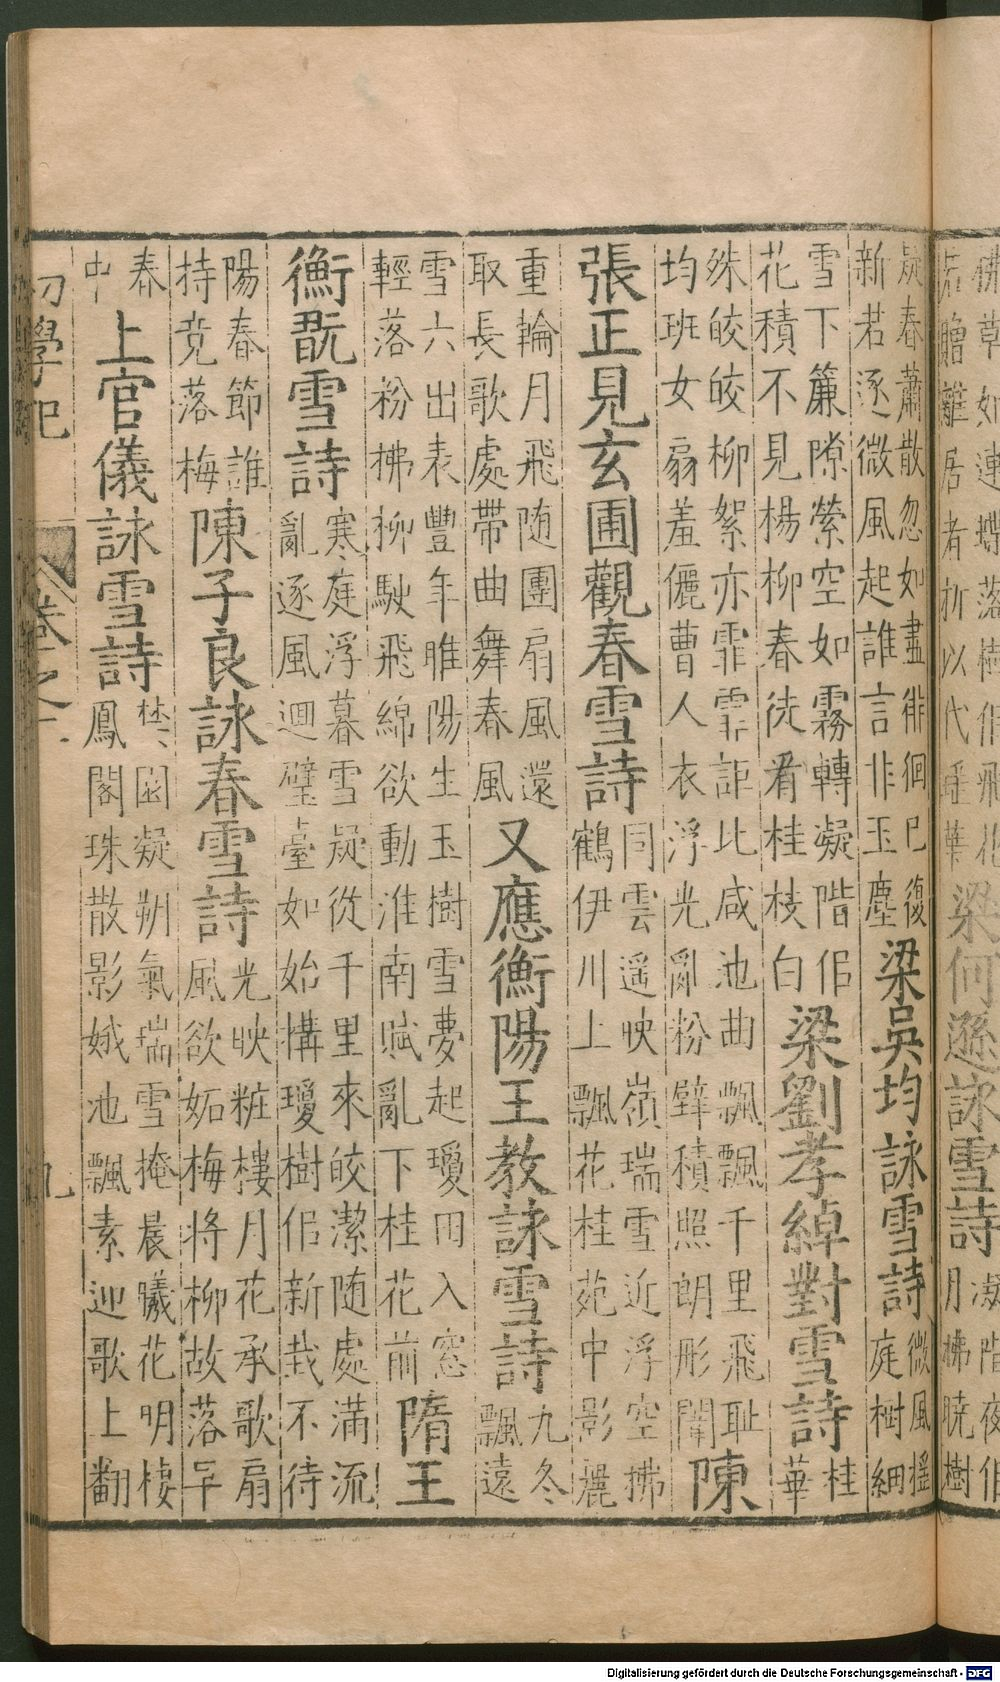 拂草如連蝶落樹似飛花
若贈離居者折以代瑤華
梁何遜詠雪詩
凝階夜似
月拂曉樹
疑春蕭散忽如盡徘徊已復
新若逐微風起誰言非玉塵
梁吳均詠雪詩
微風揺
庭樹細
雪下簾隙縈空如霧轉凝階似
花積不見楊柳春徒看桂枝白
梁劉孝綽對雪詩
桂
華
殊皎皎柳絮亦霏霏詎比咸池曲飄飄千里飛恥
均班女扇羞儷曹人衣浮光亂粉壁積照朗彤闈
陳
張正見玄圃觀春雪詩
同雲遥映嶺瑞雪近浮空拂
鶴伊川上飄花桂苑中影麗
重輪月飛随團扇風還
取長歌處帶曲舞春風
又應衡陽王教詠雪詩
九冬
飄遠
雪六出表豐年睢陽生玉樹雪夢起瓊田入窓
輕落粉拂柳駛飛綿欲動淮南賦亂下桂花前
隋王
衡翫雪詩
寒庭浮暮雪疑從千里來皎潔随處滿流
亂逐風迴璧臺如始構瓊樹似新栽不待
陽春節誰
持竞落梅
陳子良詠春雪詩
光映粧樓月花承歌扇
風欲妬梅將柳故落早
春
中
上官儀詠雪詩
禁園凝朔氣瑞雪掩晨曦花明棲
鳳閣珠散影娥池飄素迎歌上翻
初學記
卷之
九
Digitalisierung gefördert durch die Deutsche Forschungsgemeinschaft - DFG